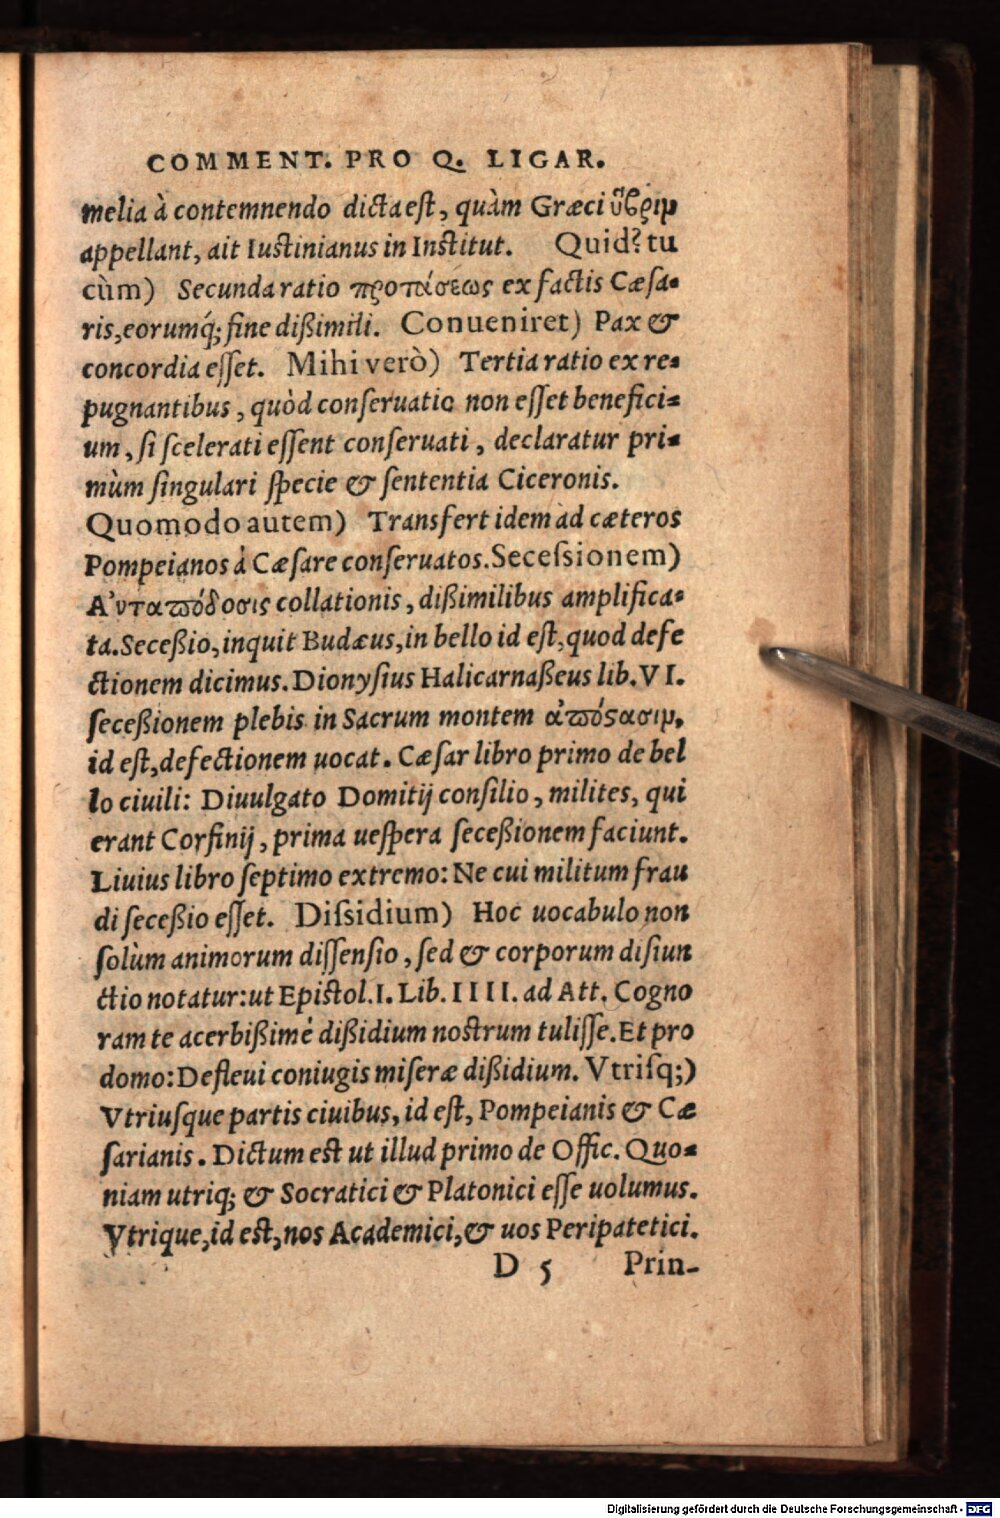 COMMENT. PRO Q. LIGAR.
melia à contemnendo dicta est, quàm Græci ὕβριμ
appellant, ait Iustinianus in Institut. Quid? tu
cùm) Secunda ratio προτάσεως ex factis Cæsa-
ris, eorumq́; fine dißimili. Conueniret) Pax &
concordia esset. Mihi verò) Tertia ratio ex re-
pugnantibus, quòd conseruatio non esset benefici-
um, si scelerati essent conseruati, declaratur pri-
mùm singulari specie & sententia Ciceronis.
Quomodo autem) Transfert idem ad cæteros
Pompeianos à Cæsare conseruatos. Secessionem)
Ἀνταπόδοσις collationis, dißimilibus amplifica-
ta. Seceßio, inquit Budæus, in bello id est, quod defe
ctionem dicimus. Dionysius Halicarnaßeus lib. VI.
seceßionem plebis in Sacrum montem ἀπόστασιμ,
id est, defectionem uocat. Cæsar libro primo de bel
lo ciuili: Diuulgato Domitij consilio, milites, qui
erant Corfinij, prima uespera seceßionem faciunt.
Liuius libro septimo extremo: Ne cui militum frau
di seceßio esset. Dissidium) Hoc uocabulo non
solùm animorum dissensio, sed & corporum disiun
ctio notatur: ut Epistol. I. Lib. IIII. ad Att. Cogno
ram te acerbißimè dißidium nostrum tulisse. Et pro
domo: Defleui coniugis miseræ dißidium. Vtrisq;)
Vtriusque partis ciuibus, id est, Pompeianis & Cæ
sarianis. Dictum est ut illud primo de Offic. Quo-
niam utriq; & Socratici & Platonici esse uolumus.
Vtrique, id est, nos Academici, & uos Peripatetici.
D 5 Prin-
Digitalisierung gefördert durch die Deutsche Forschungsgemeinschaft - DFG